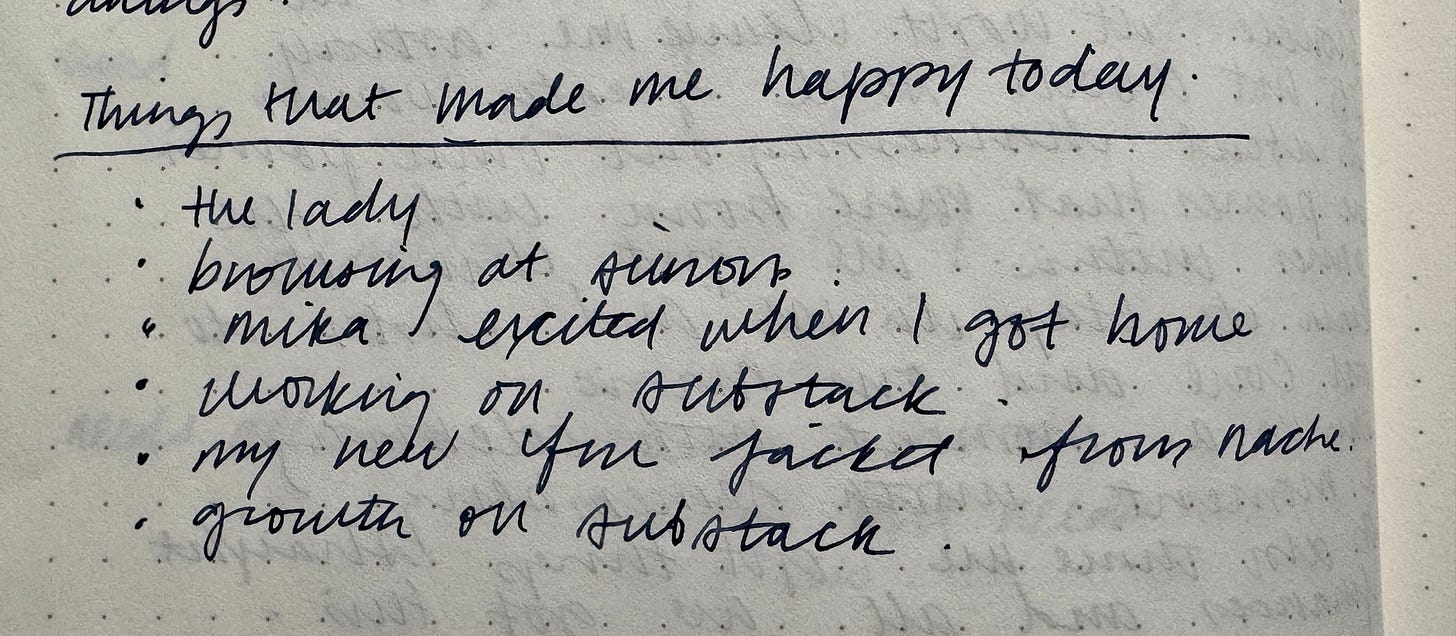 Things that made me happy today.
· the lady
· browsing at simons.
· mika excited when I got home
· working on substack.
· my new fur jacket from
· growth on substack.